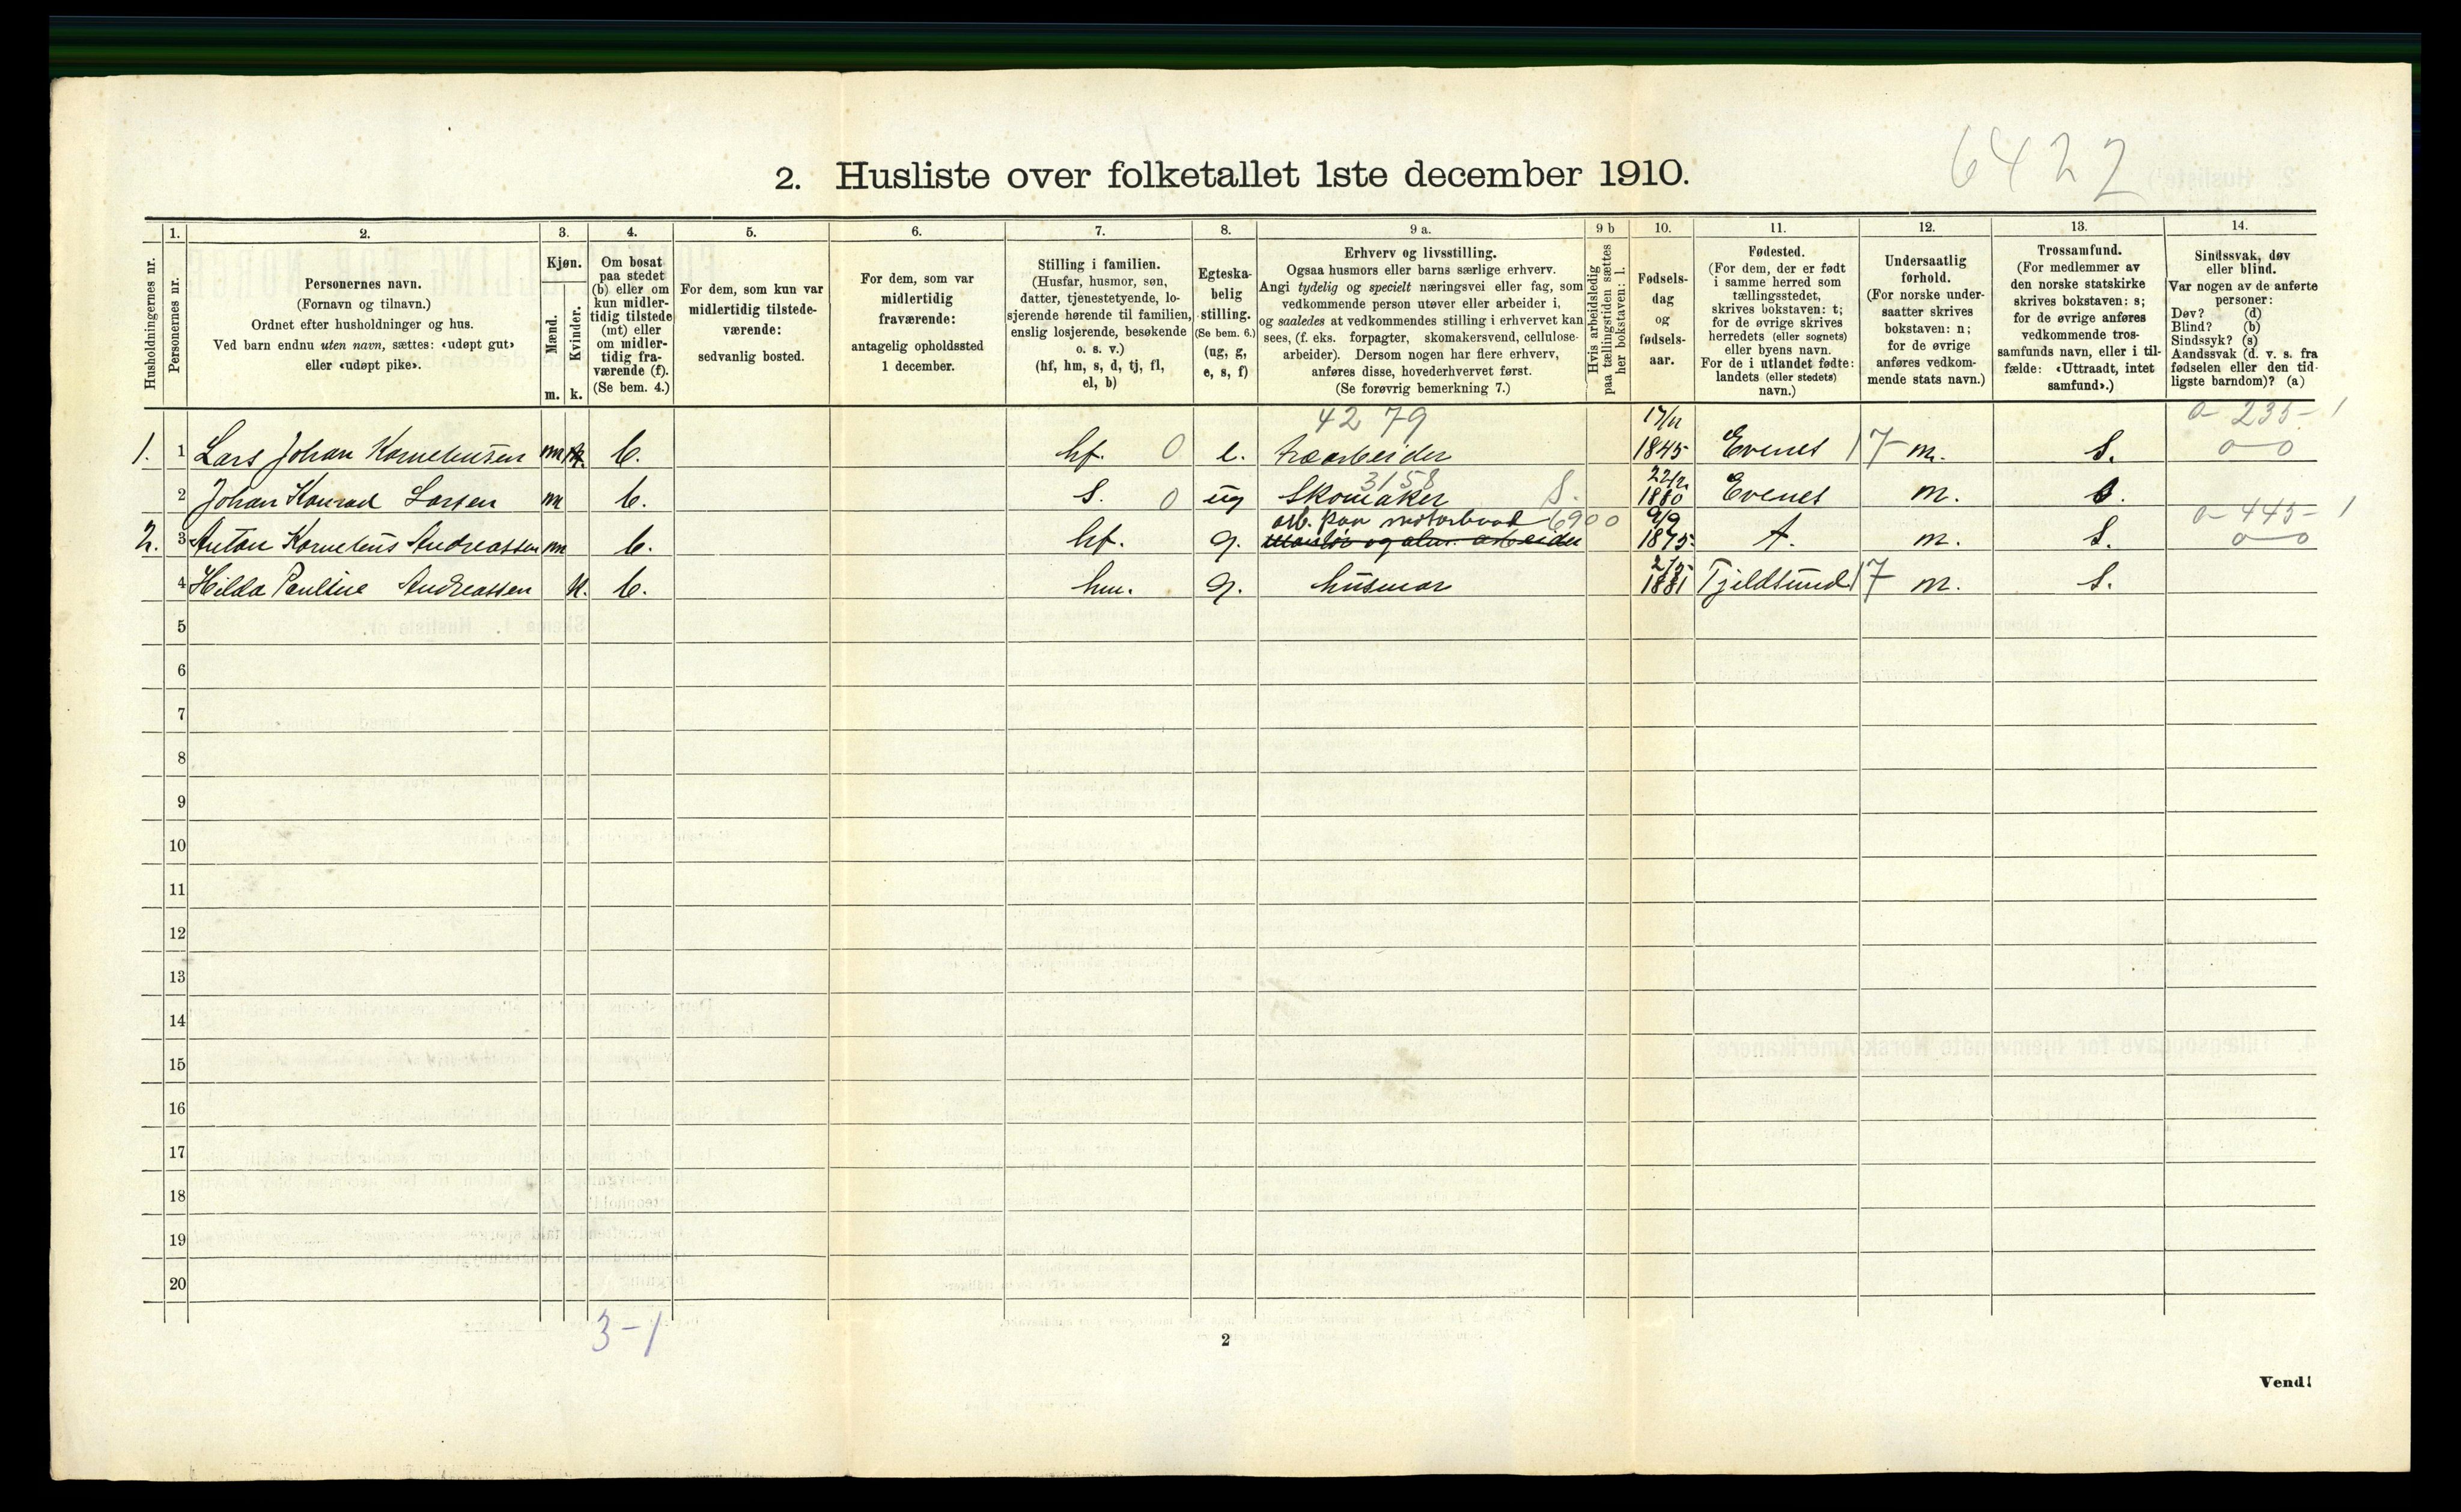 6422
2. Husliste over folketallet 1ste december 1910.
Husholdningernes nr.
1.
Personernes nr.
2.
Personernes navn.
(Fornavn og tilnavn.)
Ordnet efter husholdninger og hus.
Ved barn endnu uten navn, sættes: «udøpt gut»
eller «udøpt pike».
3.
Kjøn.
Mænd.
Kvinder.
m. k.
4.
Om bosat
paa stedet
(b) eller om
kun midler-
tidig tilstede
(mt) eller
om midler-
tidig fra-
værende (f).
(Se bem. 4.)
5.
For dem, som kun var
midlertidig tilstede-
værende:
sedvanlig bosted.
6.
For dem, som var
midlertidig
fraværende:
antagelig opholdssted
1 december.
7.
Stilling i familien.
(Husfar, husmor, søn,
datter, tjenestetyende, lo-
sjerende hørende til familien,
enslig losjerende, besøkende
o. s. v.)
(hf, hm, s, d, tj, fl,
el, b)
8.
Egteska-
belig
stilling.
(Se bem. 6.)
(ug, g,
e, s, f)
9 a.
Erhverv og livsstilling.
Ogsaa husmors eller barns særlige erhverv.
Angi tydelig og specielt næringsvei eller fag, som
vedkommende person utøver eller arbeider i,
og saaledes at vedkommendes stilling i erhvervet kan
sees, (f. eks. forpagter, skomakersvend, cellulose-
arbeider). Dersom nogen har flere erhverv,
anføres disse, hovederhvervet først.
(Se forøvrig bemerkning 7.)
9 b
Hvis arbeidsledig
paa tællingstiden sættes
her bokstaven: l.
10.
Fødsels-
dag
og
fødsels-
aar.
11.
Fødested.
(For dem, der er født
i samme herred som
tællingsstedet,
skrives bokstaven: t;
for de øvrige skrives
herredets (eller sognets)
eller byens navn.
For de i utlandet fødte:
landets (eller stedets)
navn.)
12.
Undersaatlig
forhold.
(For norske under-
saatter skrives
bokstaven: n;
for de øvrige
anføres vedkom-
mende stats navn.)
13.
Trossamfund.
(For medlemmer av
den norske statskirke
skrives bokstaven: s;
for de øvrige anføres
vedkommende tros-
samfunds navn, eller i til-
fælde: «Uttraadt, intet
samfund».)
14.
Sindssvak, døv
eller blind.
Var nogen av de anførte
personer:
Døv? (d)
Blind? (b)
Sindssyk? (s)
Aandssvak (d. v. s. fra
fødselen eller den tid-
ligste barndom)? (a)
42 79 17/11 0-235-1
1. 1 Lars Johan Korneliussen m b. hf. 0 e. træarbeider 1845 Evenes 17 n. S. 0-0
3158 22/12
2 Johan Konrad Larsen m b. S. 0 ug Skomaker S. 1880 Evenes n. S.
arb. paa motorbaad 6900 9/9 0-445-1
2. 3 Anton Kornelius Andreassen m b. hf. g. 1875 t. n. S. 0-0
2/5
4 Hilda Pauline Andreassen k. b. hm. g. husmor 1881 Tjeldsund 17 n. S.
5
6
7
8
9
10
11
12
13
14
15
16
17
18
19
20
3-1
2
Vend!